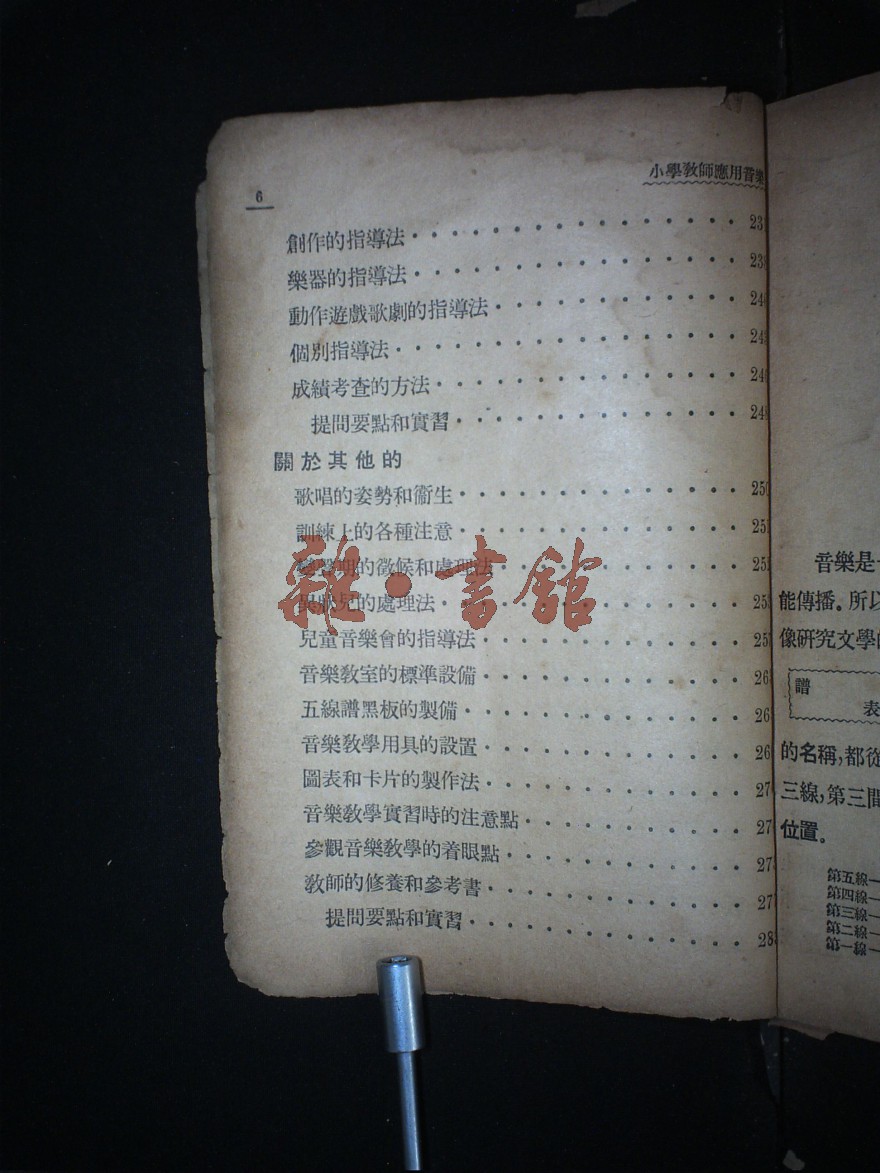 6
小學教師應用音樂
創作的指導法・・・・・・・・・・・・・・・23
樂器的指導法・・・・・・・・・・・・・・・23
動作遊戲歌劇的指導法・・・・・・・・・・・24
個別指導法・・・・・・・・・・・・・・・・24
成績考查的方法・・・・・・・・・・・・・・24
提問要點和實習・・・・・・・・・・・・・・24
關於其他的
歌唱的姿勢和衞生・・・・・・・・・・・・・250
訓練上的各種注意・・・・・・・・・・・・・25
變聲期的徵候和處理法・・・・・・・・・・・25
異狀兒的處理法・・・・・・・・・・・・・・25
兒童音樂會的指導法・・・・・・・・・・・・25
音樂敎室的標準設備・・・・・・・・・・・・26
五線譜黑板的製備・・・・・・・・・・・・・26
音樂敎學用具的設置・・・・・・・・・・・・26
圖表和卡片的製作法・・・・・・・・・・・・27
音樂敎學實習時的注意點・・・・・・・・・・27
參觀音樂敎學的着眼點・・・・・・・・・・・27
敎師的修養和參考書・・・・・・・・・・・・27
提問要點和實習・・・・・・・・・・・・・・28
雜・書館
音樂是
能傳播。所以
像研究文學
譜
表
的名稱,都從
三線,第三間
位置。
第五線
第四線
第三線
第二線
第一線